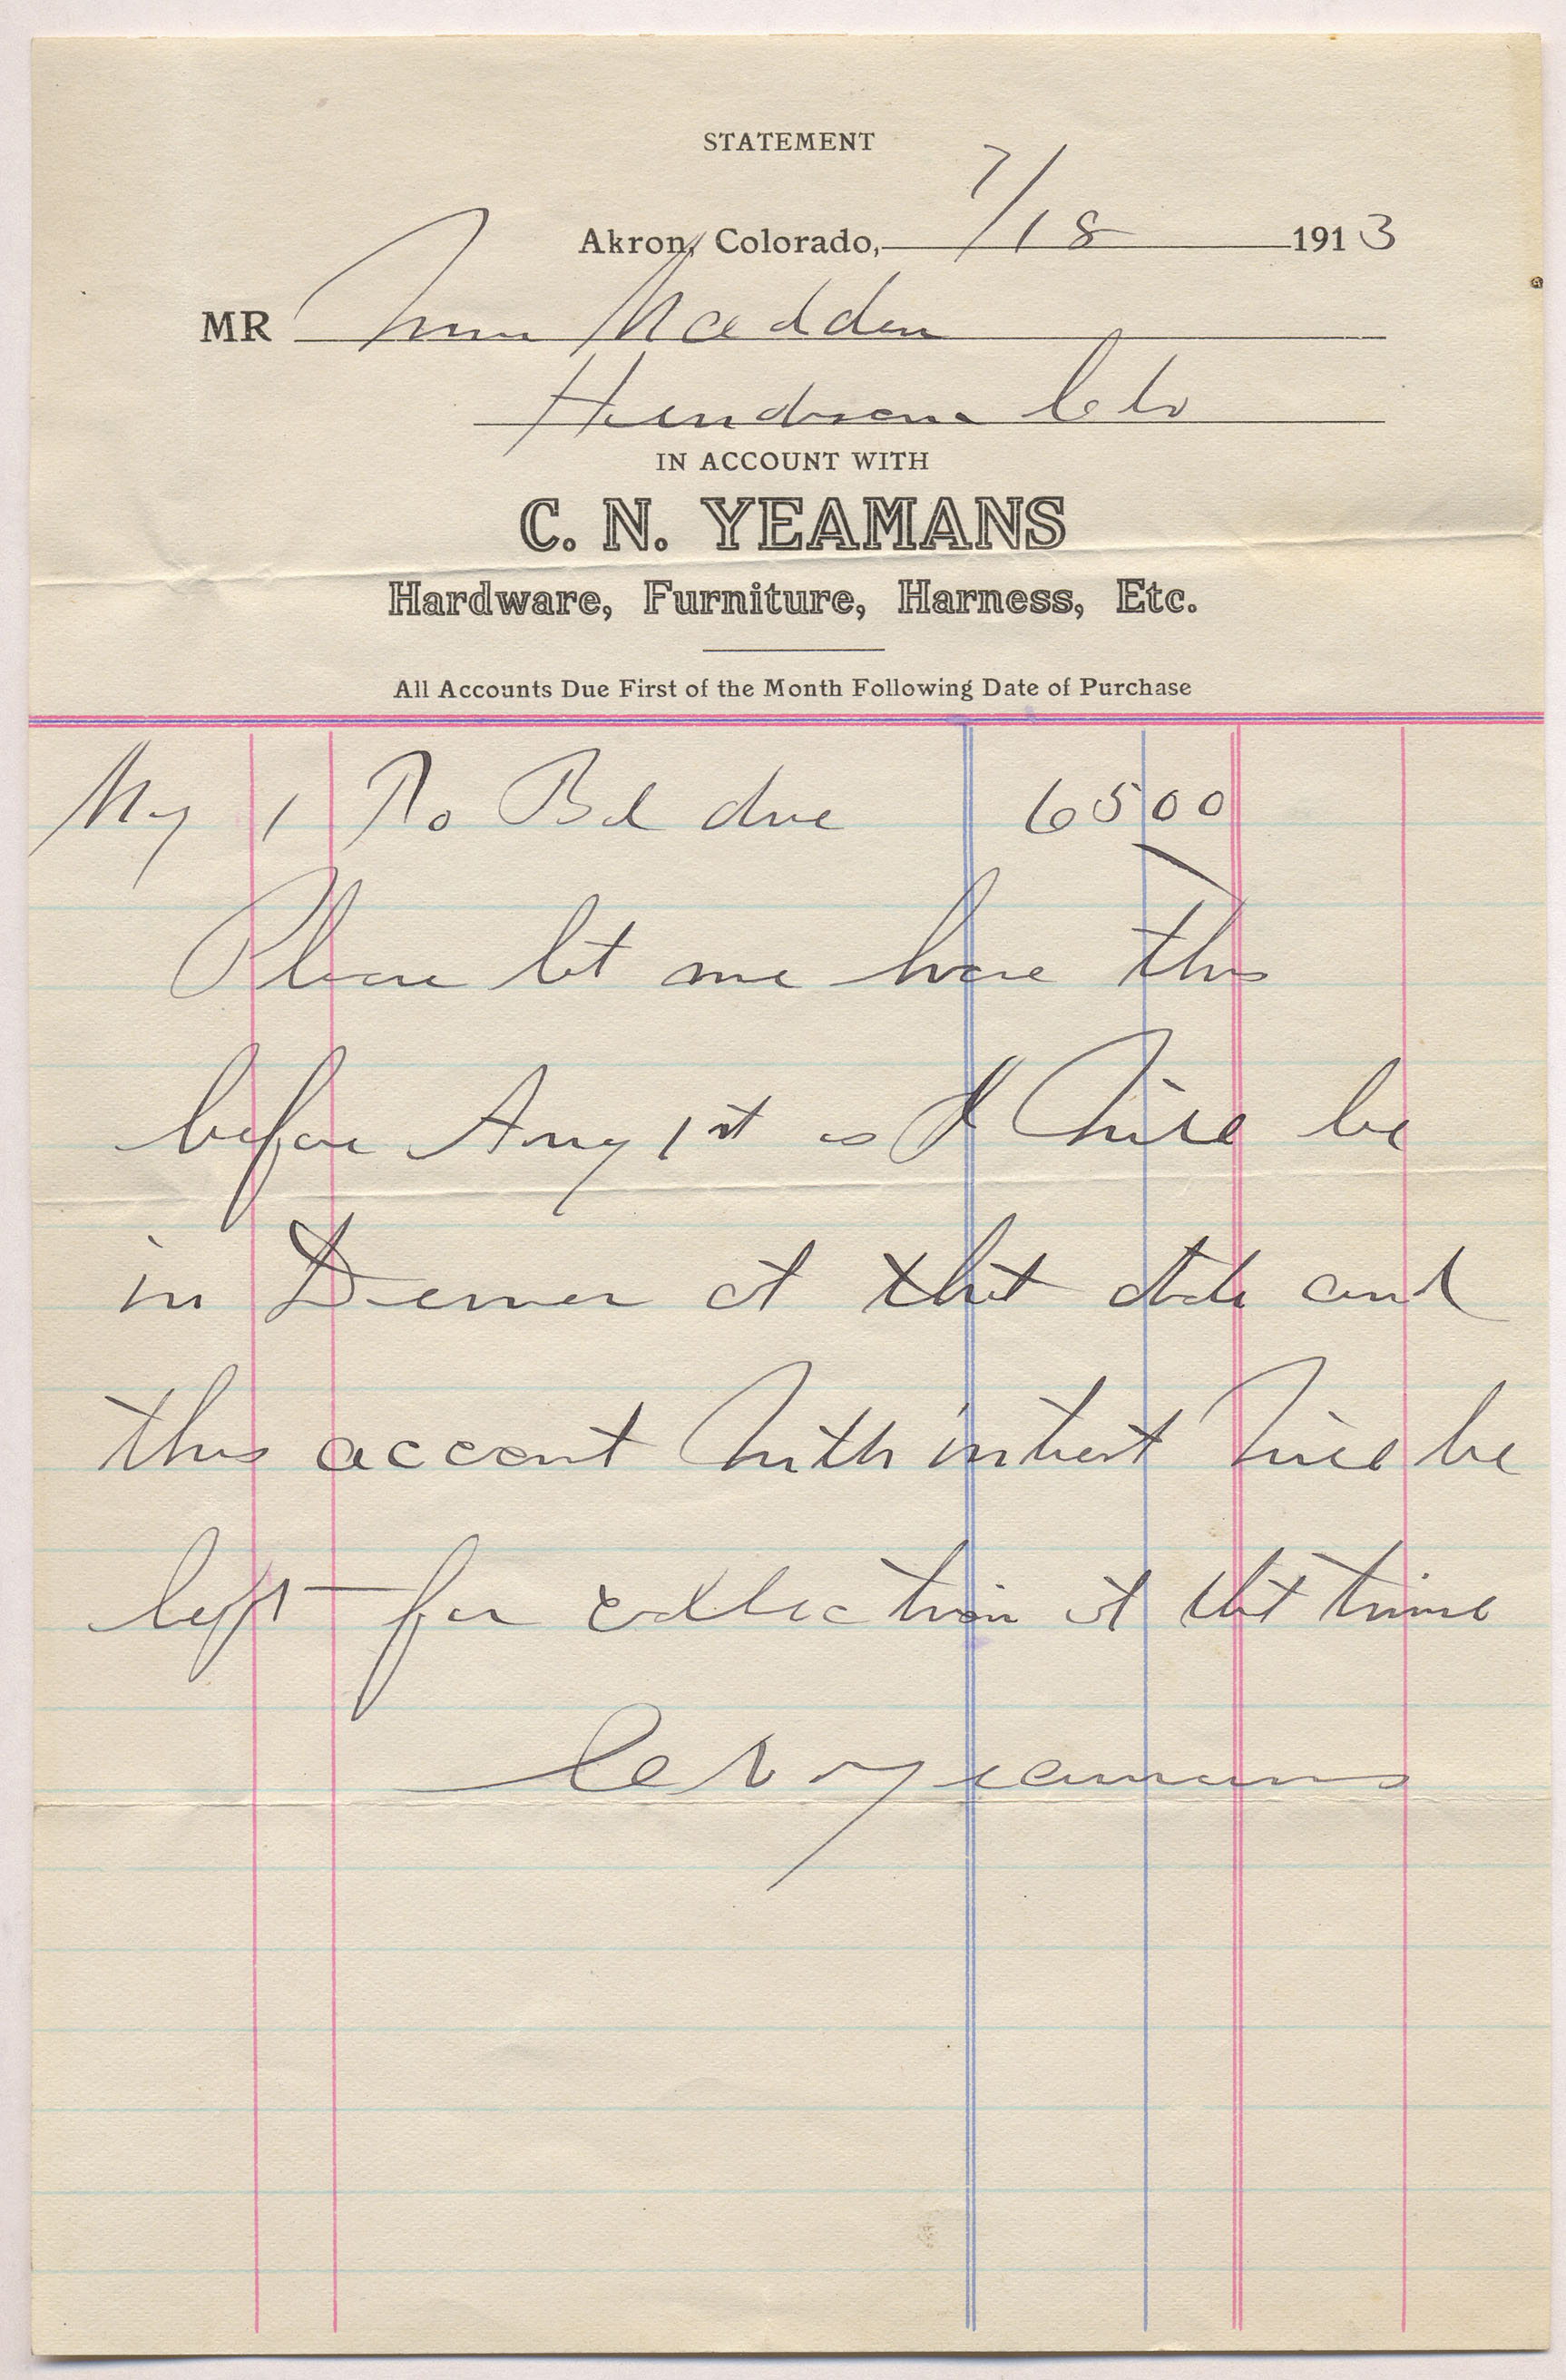 STATEMENT
Akron, Colorado, 7/18 1913
MR Wm Madden
Henderson Colo
IN ACCOUNT WITH
C. N. YEAMANS
Hardware, Furniture, Harness, Etc.
All Accounts Due First of the Month Following Date of Purchase
My 1 To Bal due 65 00
Please let me have this
before Aug 1st as I will be
in Denver at that date and
this account with interest will be
left for collection at that time
C N Yeamans